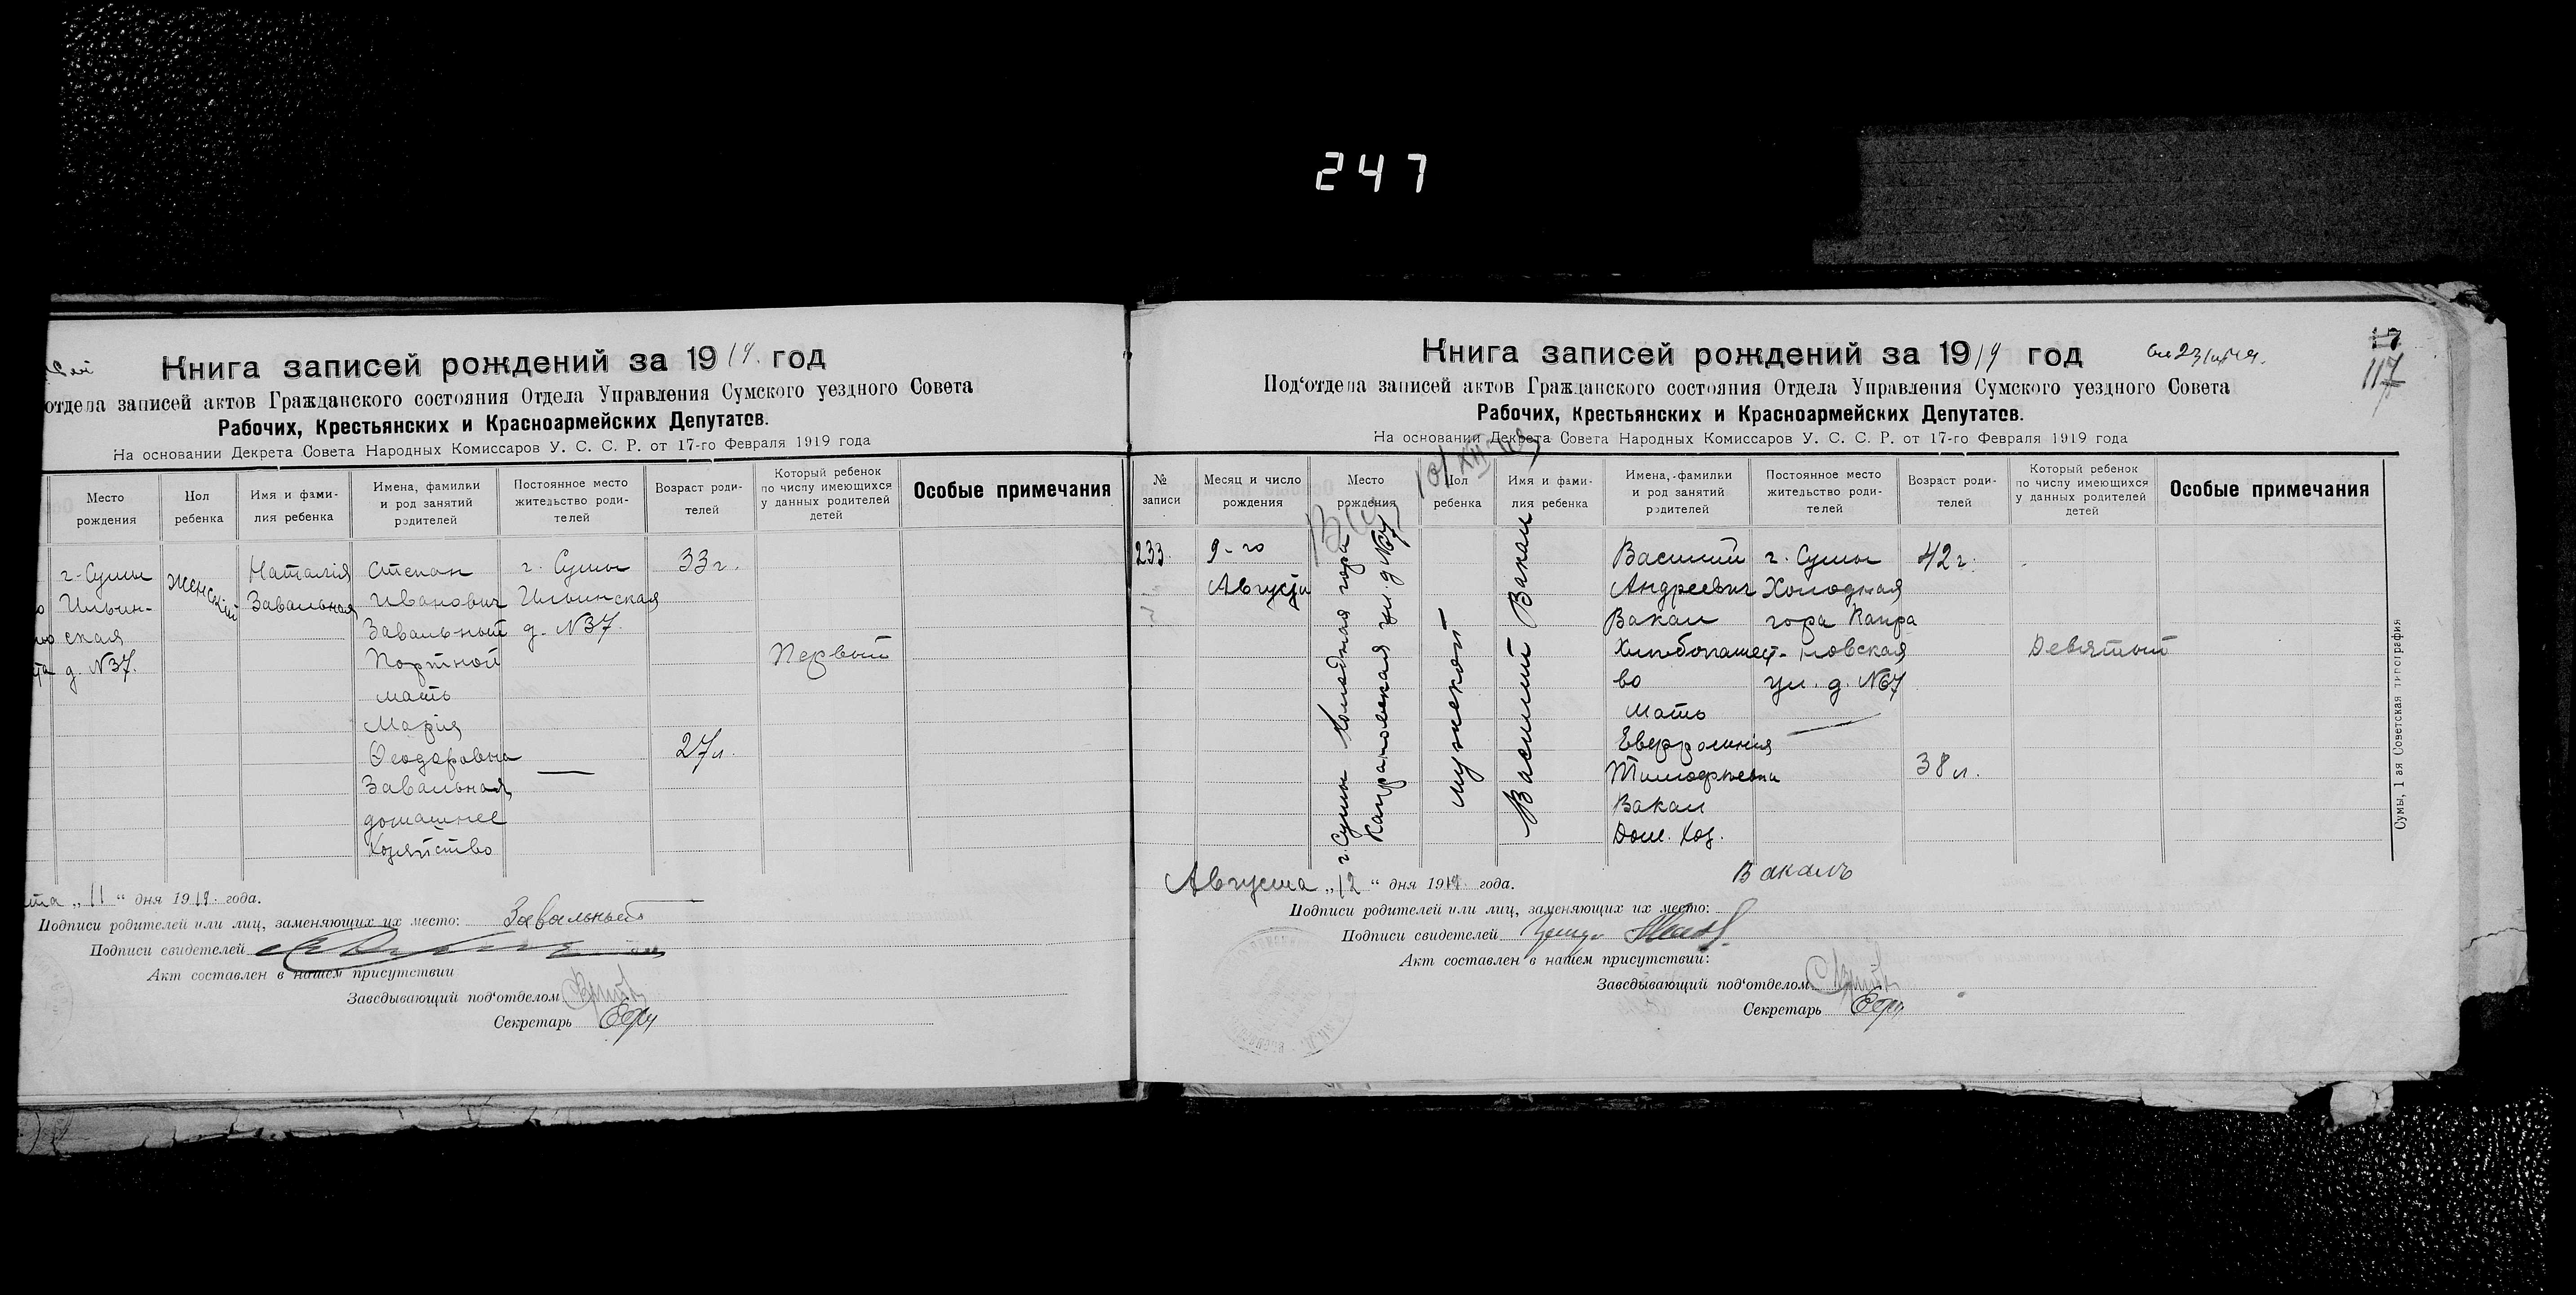 247
Книга записей рождений за 1919. год
отдела записей актов Гражданского состояния Отдела Управления Сумского уездного Совета
Рабочих, Крестьянских и Красноармейских Депутатов.
На основании Декрета Совета Народных Комиссаров У. С. С. Р. от 17-го Февраля 1919 года
Место рождения
Пол ребенка
Имя и фами-лия ребенка
Имена, фамилки и род занятий родителей
Постоянное место жительство роди-телей
Возраст роди-телей
Который ребенок по числу имеющихся у данных родителей детей
Особые примечания
г. Сумы
Ильин-
ская
д. №37.
Женскій
Наталія
Завальная
Степан
Иванович
Завальный
Портной
мать
Марія
Феодоровна
Завальная,
домашнее
Хозяйство
г. Сумы
Ильинская
д. №37.
—
33 г.
27 л.
Первый
ста „11“ дня 1919. года.
Подписи родителей или лиц, заменяющих их место: Завальный
Подписи свидетелей
Акт составлен в нашем присутствии
Заведывающий под‘отделом
Секретарь
Книга записей рождений за 1919 год
17
117
Под‘отдела записей актов Гражданского состояния Отдела Управления Сумского уездного Совета
Рабочих, Крестьянских и Красноармейских Депутатов.
На основании Декрета Совета Народных Комиссаров У. С. С. Р. от 17-го Февраля 1919 года
№ записи
Месяц и число рождения
Место рождения
Пол ребенка
Имя и фами-лия ребенка
Имена,-фамилки и род занятий родителей
Постоянное место жительство роди-телей
Возраст роди-телей
Который ребенок по числу имеющихся у данных родителей детей
Особые примечания
233.
9-го
Августа
г. Сумы Холодная гора
Капрановская ул. д №67
мужской
Василий Вакал
Василий
Андреевич
Вакал
Хлебопашест-
во
Мать
Евфросинія
Тимофеевна
Вакал
Дом. Хоз.
г. Сумы
Холодная
гора Капра
новская
ул. д. №67
—
42 г.
38 л.
Девятый
Августа „12“ дня 1919. года.
Вакалъ
Подписи родителей или лиц, заменяющих их место:
Подписи свидетелей
Акт составлен в нашем присутствий:
Заведывающий под‘отделом
Секретарь
Сумы, 1 ая Советская типография